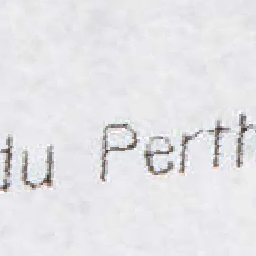 du Perth